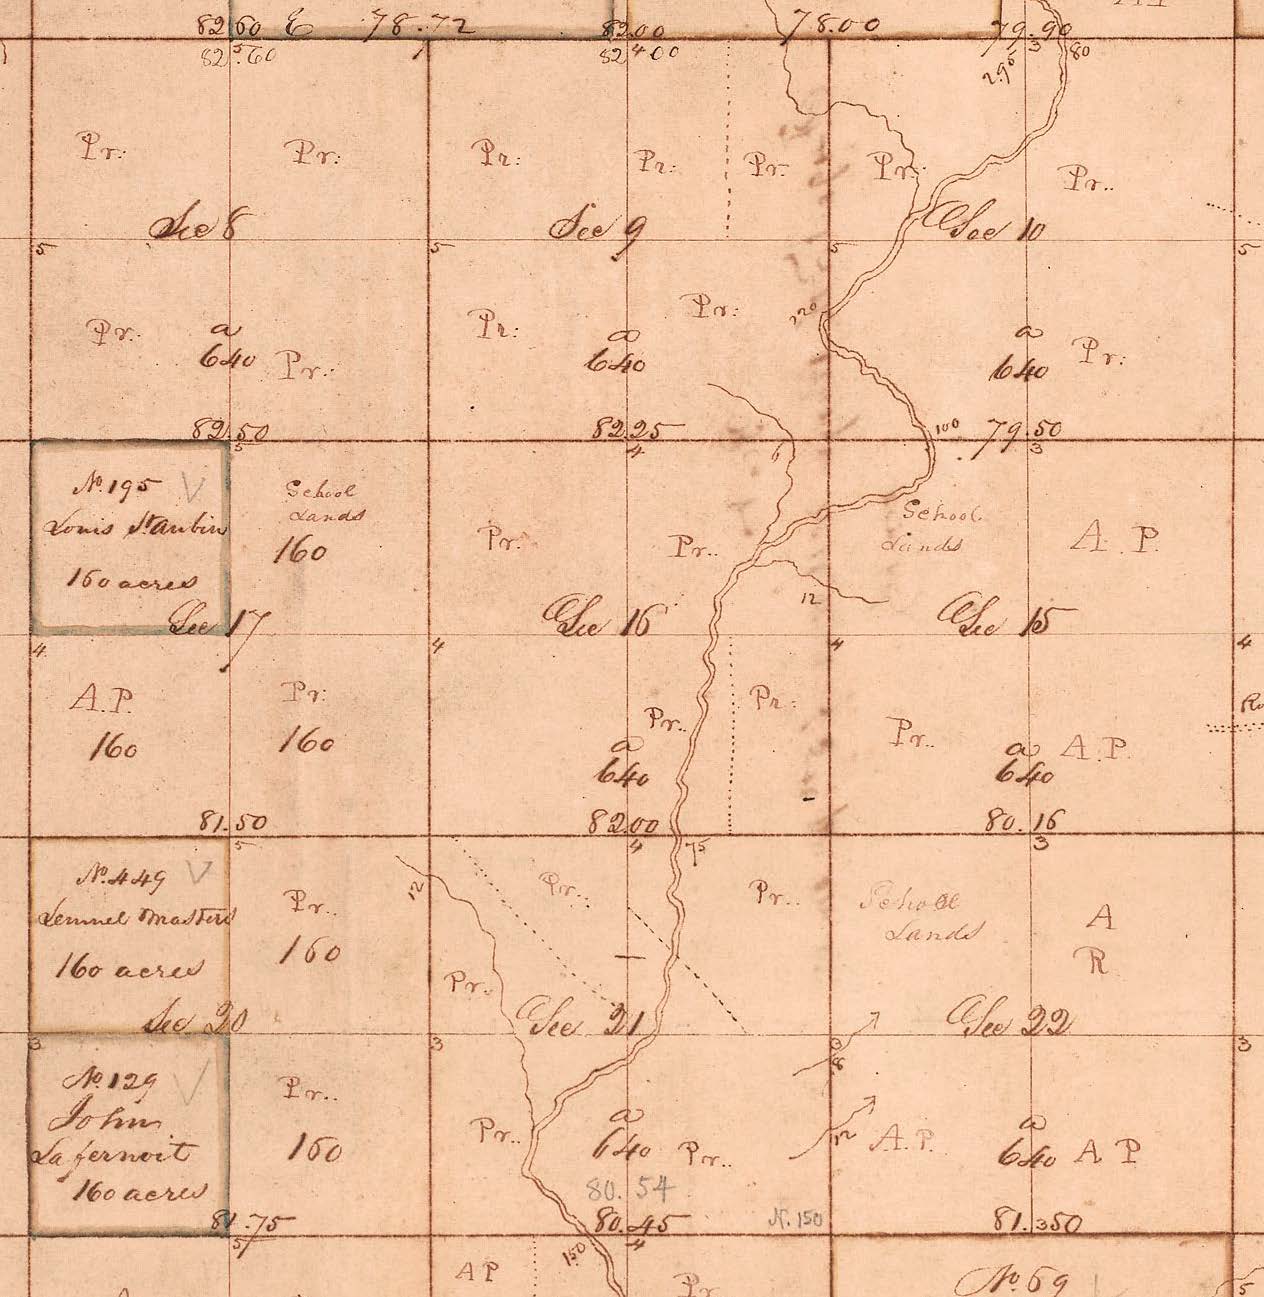 82.60 E 78.72 82.00 78.00 79.90
82.60 82.00 3 80
5 4 295
Pr: Pr: Pr: Pr: Pr: Pr: Pr..
Sec 8 Sec 9 Sec 10
5 5 5 5
Pr: Pr. Pr: Pr: Pr:
a a a
640 640 640
220
82.50 82.25 100 79.50
5 4 3
6
No. 195
Louis St. aubin
160 acres
School
Lands
160
Pr. Pr..
School
Lands
A. P.
12
Sec 17 Sec 16 Sec 15
4 4 4 4
A.P. Pr: Pr.. Pr: Pr.. A.P.
160 160
a a
640 640
81.50 82.00 80.16
5 4 75 3
No. 449
Lemuel Masters
160 acres
12
Pr.. Pr.. Pr..
160
Pr..
School
Lands
A
R
Sec 20 Sec 21 Sec 22
3 3 3 3
8
No. 129
John
Lafernoit
160 acres
Pr..
160
Pr.. Pr..
a a
640 640
12
A.P. A P
80.54
N. 150
81.75 80.45 81.50
5 4 3
150
A P Pr No. 69 5